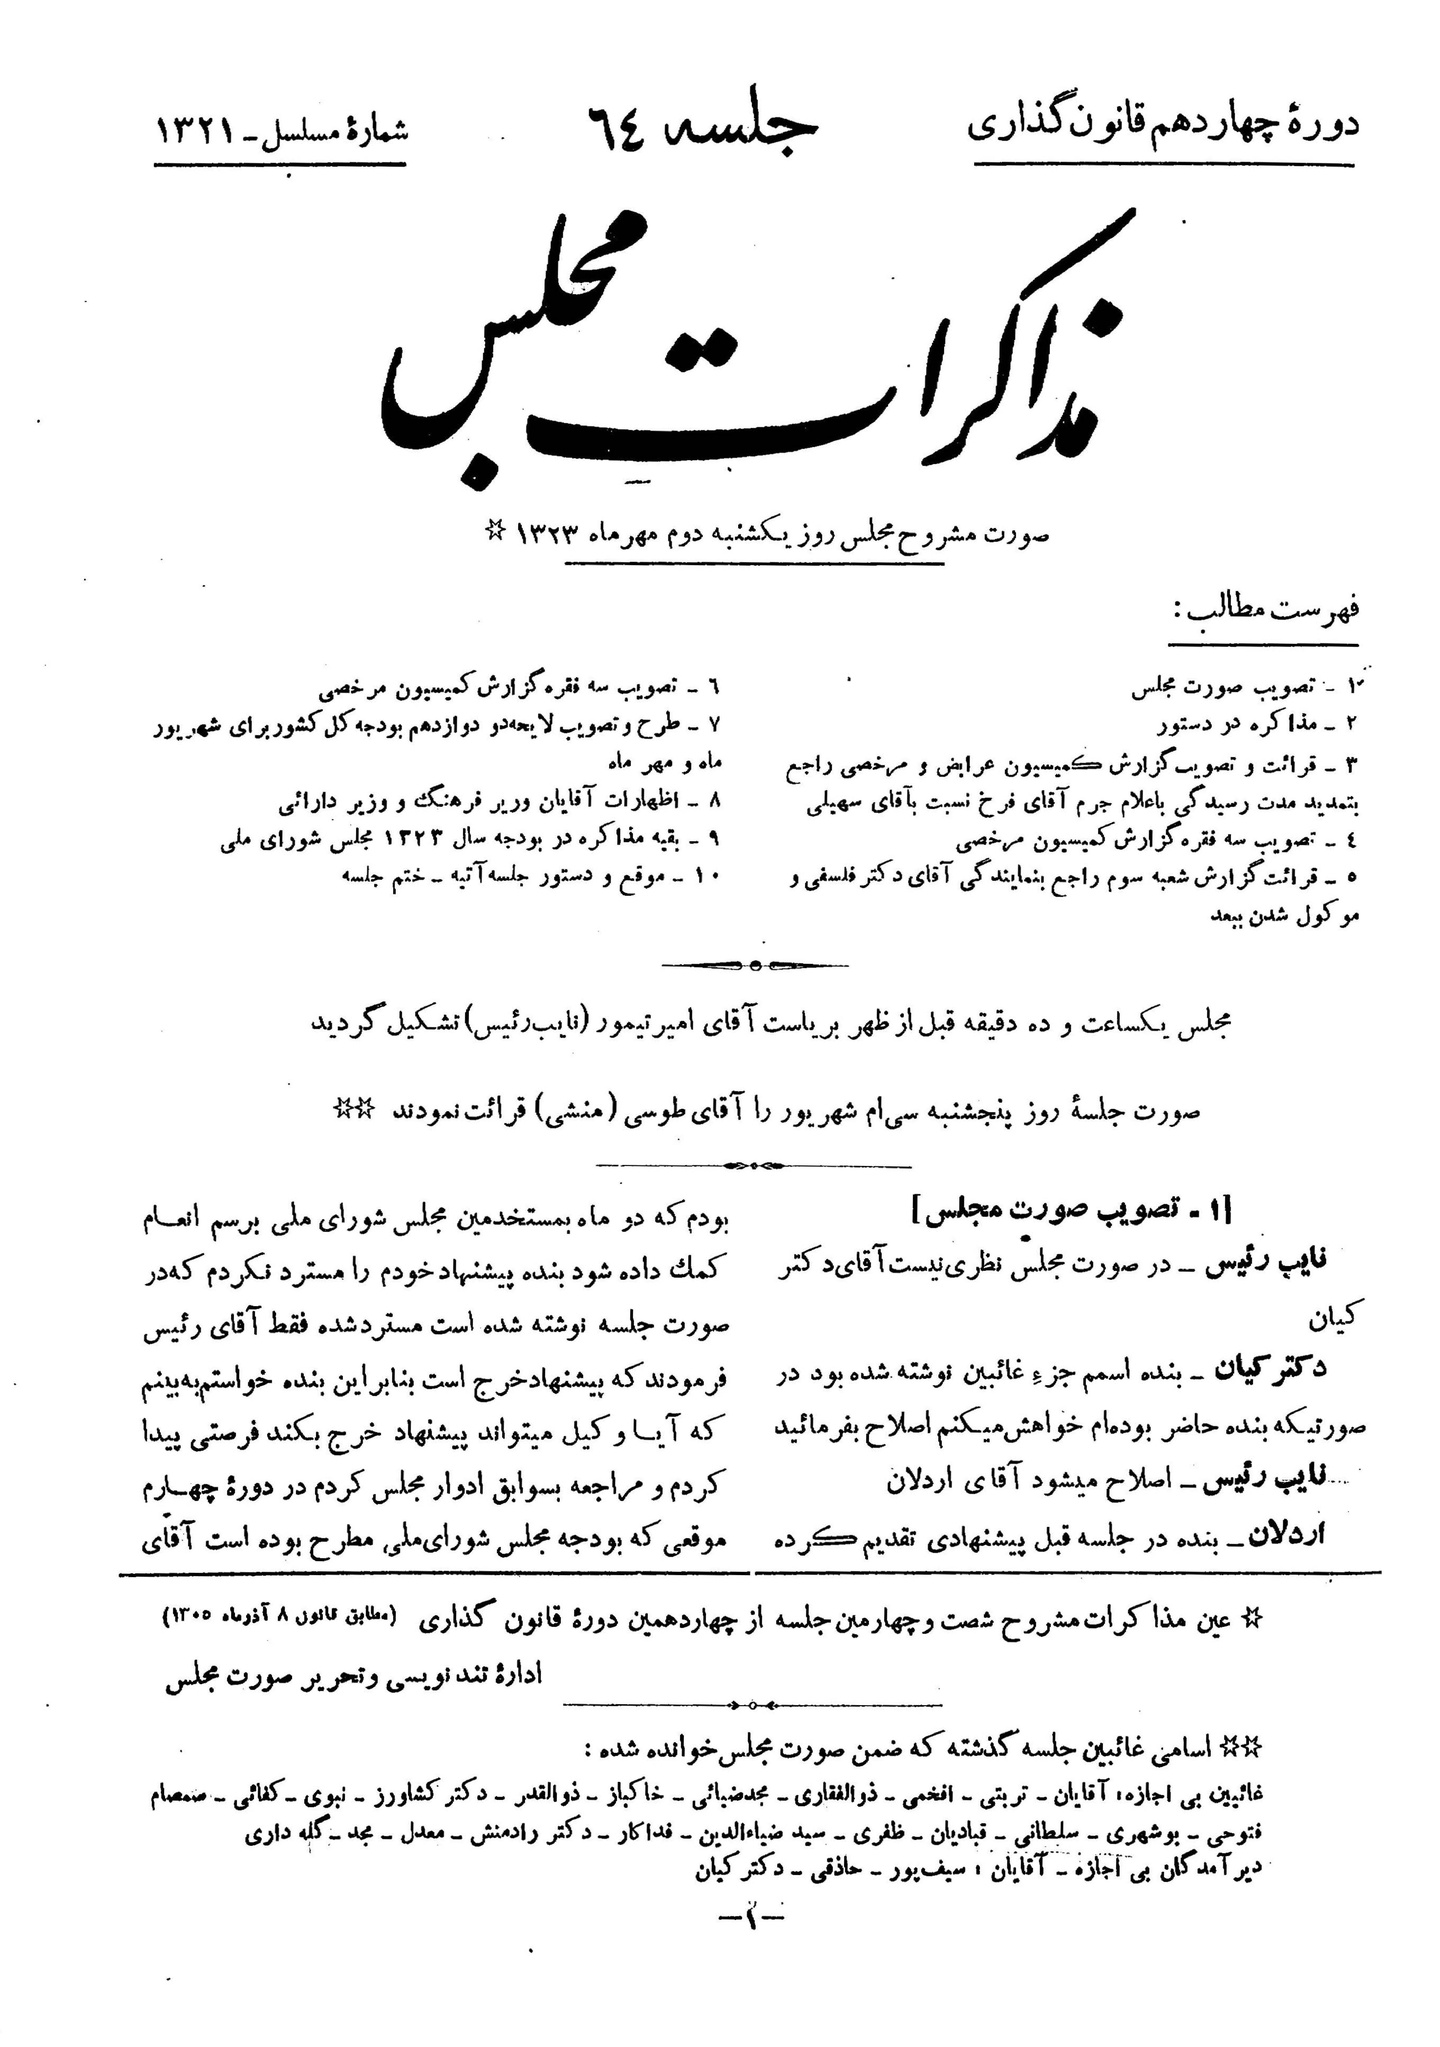 دورهٔ چهاردهم قانون‌گذاری
جلسه ٦٤
شمارهٔ مسلسل ـ ۱۳۲۱
مذاکرات مجلس
صورت مشروح مجلس روز یکشنبه دوم مهرماه ۱۳۲۳ ☆
فهرست مطالب :
۱ ـ تصویب صورت مجلس
۲ ـ مذاکره در دستور
۳ ـ قرائت و تصویب گزارش کمیسیون عرایض و مرخصی راجع
بتمدید مدت رسیدگی باعلام جرم آقای فرخ نسبت بآقای سهیلی
٤ ـ تصویب سه فقره گزارش کمیسیون مرخصی
٥ ـ قرائت گزارش شعبه سوم راجع بنمایندگی آقای دکتر فلسفی و
موکول شدن ببعد
٦ ـ تصویب سه فقره گزارش کمیسیون مرخصی
۷ ـ طرح و تصویب لایحه دو دوازدهم بودجه کل کشور برای شهریور
ماه و مهر ماه
۸ ـ اظهارات آقایان وزیر فرهنگ و وزیر دارائی
۹ ـ بقیه مذاکره در بودجه سال ۱۳۲۳ مجلس شورای ملی
۱۰ ـ موقع و دستور جلسه آتیه ـ ختم جلسه
مجلس یکساعت و ده دقیقه قبل از ظهر بریاست آقای امیرتیمور (نایب رئیس) تشکیل گردید
صورت جلسهٔ روز پنجشنبه سی‌ام شهریور را آقای طوسی (منشی) قرائت نمودند ☆☆
[۱ ـ تصویب صورت مجلس]
نایب رئیس ـ در صورت مجلس نظری نیست آقای دکتر
کیان
دکتر کیان ـ بنده اسمم جزء غائبین نوشته شده بود در
صورتیکه بنده حاضر بوده‌ام خواهش میکنم اصلاح بفرمائید
نایب رئیس ـ اصلاح میشود آقای اردلان
اردلان ـ بنده در جلسه قبل پیشنهادی تقدیم کرده
بودم که دو ماه بمستخدمین مجلس شورای ملی برسم انعام
کمك داده شود بنده پیشنهاد خودم را مسترد نکردم که در
صورت جلسه نوشته شده است مسترد شده فقط آقای رئیس
فرمودند که پیشنهاد خرج است بنابراین بنده خواستم به‌بینم
که آیا وکیل میتواند پیشنهاد خرج بکند فرصتی پیدا
کردم و مراجعه بسوابق ادوار مجلس کردم در دورهٔ چهارم
موقعی که بودجه مجلس شورای ملی مطرح بوده است آقای
☆ عین مذاکرات مشروح شصت و چهارمین جلسه از چهاردهمین دورهٔ قانون گذاری (مطابق قانون ۸ آذرماه ۱۳۰٥)
ادارهٔ تند نویسی و تحریر صورت مجلس
☆☆ اسامی غائبین جلسه گذشته که ضمن صورت مجلس خوانده شده :
غائبین بی اجازه: آقایان ـ تربتی ـ افخمی ـ ذوالفقاری ـ مجدضیائی ـ خاکباز ـ ذوالقدر ـ دکتر کشاورز ـ نبوی ـ کفائی ـ صمصام
فتوحی ـ بوشهری ـ سلطانی ـ قبادیان ـ ظفری ـ سید ضیاءالدین ـ فداکار ـ دکتر رادمنش ـ معدل ـ مجد ـ گله داری
دیرآمدگان بی اجازه ـ آقایان : سیف‌پور ـ حاذقی ـ دکتر کیان